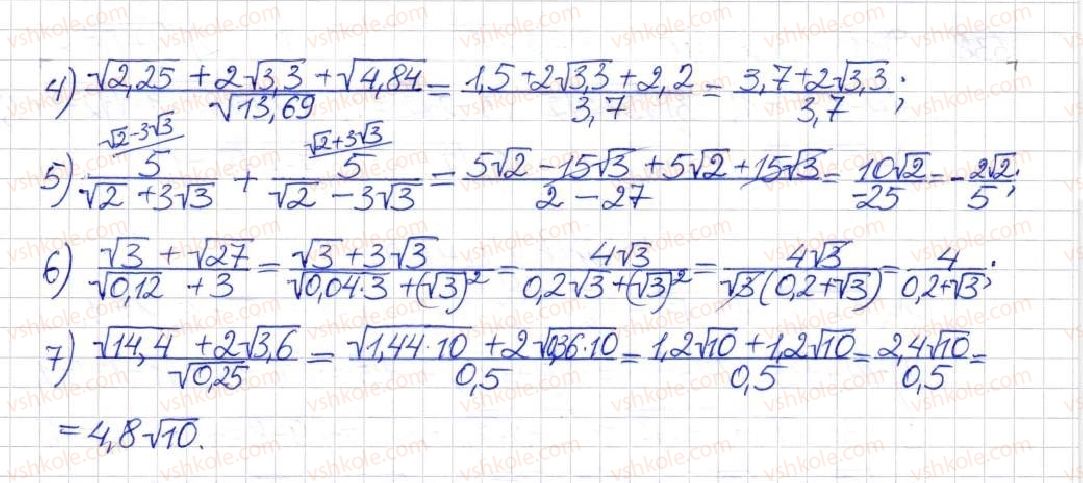 4) (√2,25 + 2√3,3 + √4,84)/√13,69 = (1,5 + 2√3,3 + 2,2)/3,7 = (3,7 + 2√3,3)/3,7;
√2-3√3 √2+3√3
5) 5/(√2 + 3√3) + 5/(√2 - 3√3) = (5√2 - 15√3 + 5√2 + 15√3)/(2 - 27) = 10√2/-25 = -2√2/5;
6) (√3 + √27)/(√0,12 + 3) = (√3 + 3√3)/(√0,04·3 + (√3)²) = 4√3/(0,2√3 + (√3)²) = 4√3/(√3(0,2+√3)) = 4/(0,2+√3);
7) (√14,4 + 2√3,6)/√0,25 = (√1,44·10 + 2√0,36·10)/0,5 = (1,2√10 + 1,2√10)/0,5 = 2,4√10/0,5 =
= 4,8√10.
vshkole.com